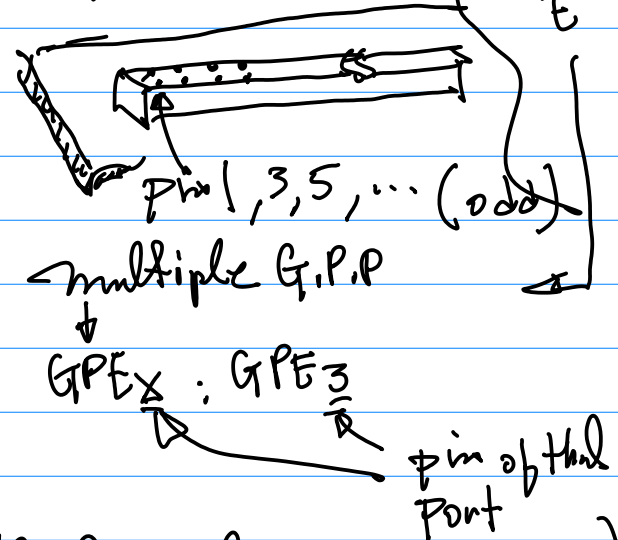 t
pin 1, 3, 5, ... (odd)
multiple G.P.P
GPEx : GPE3
pin of that
port